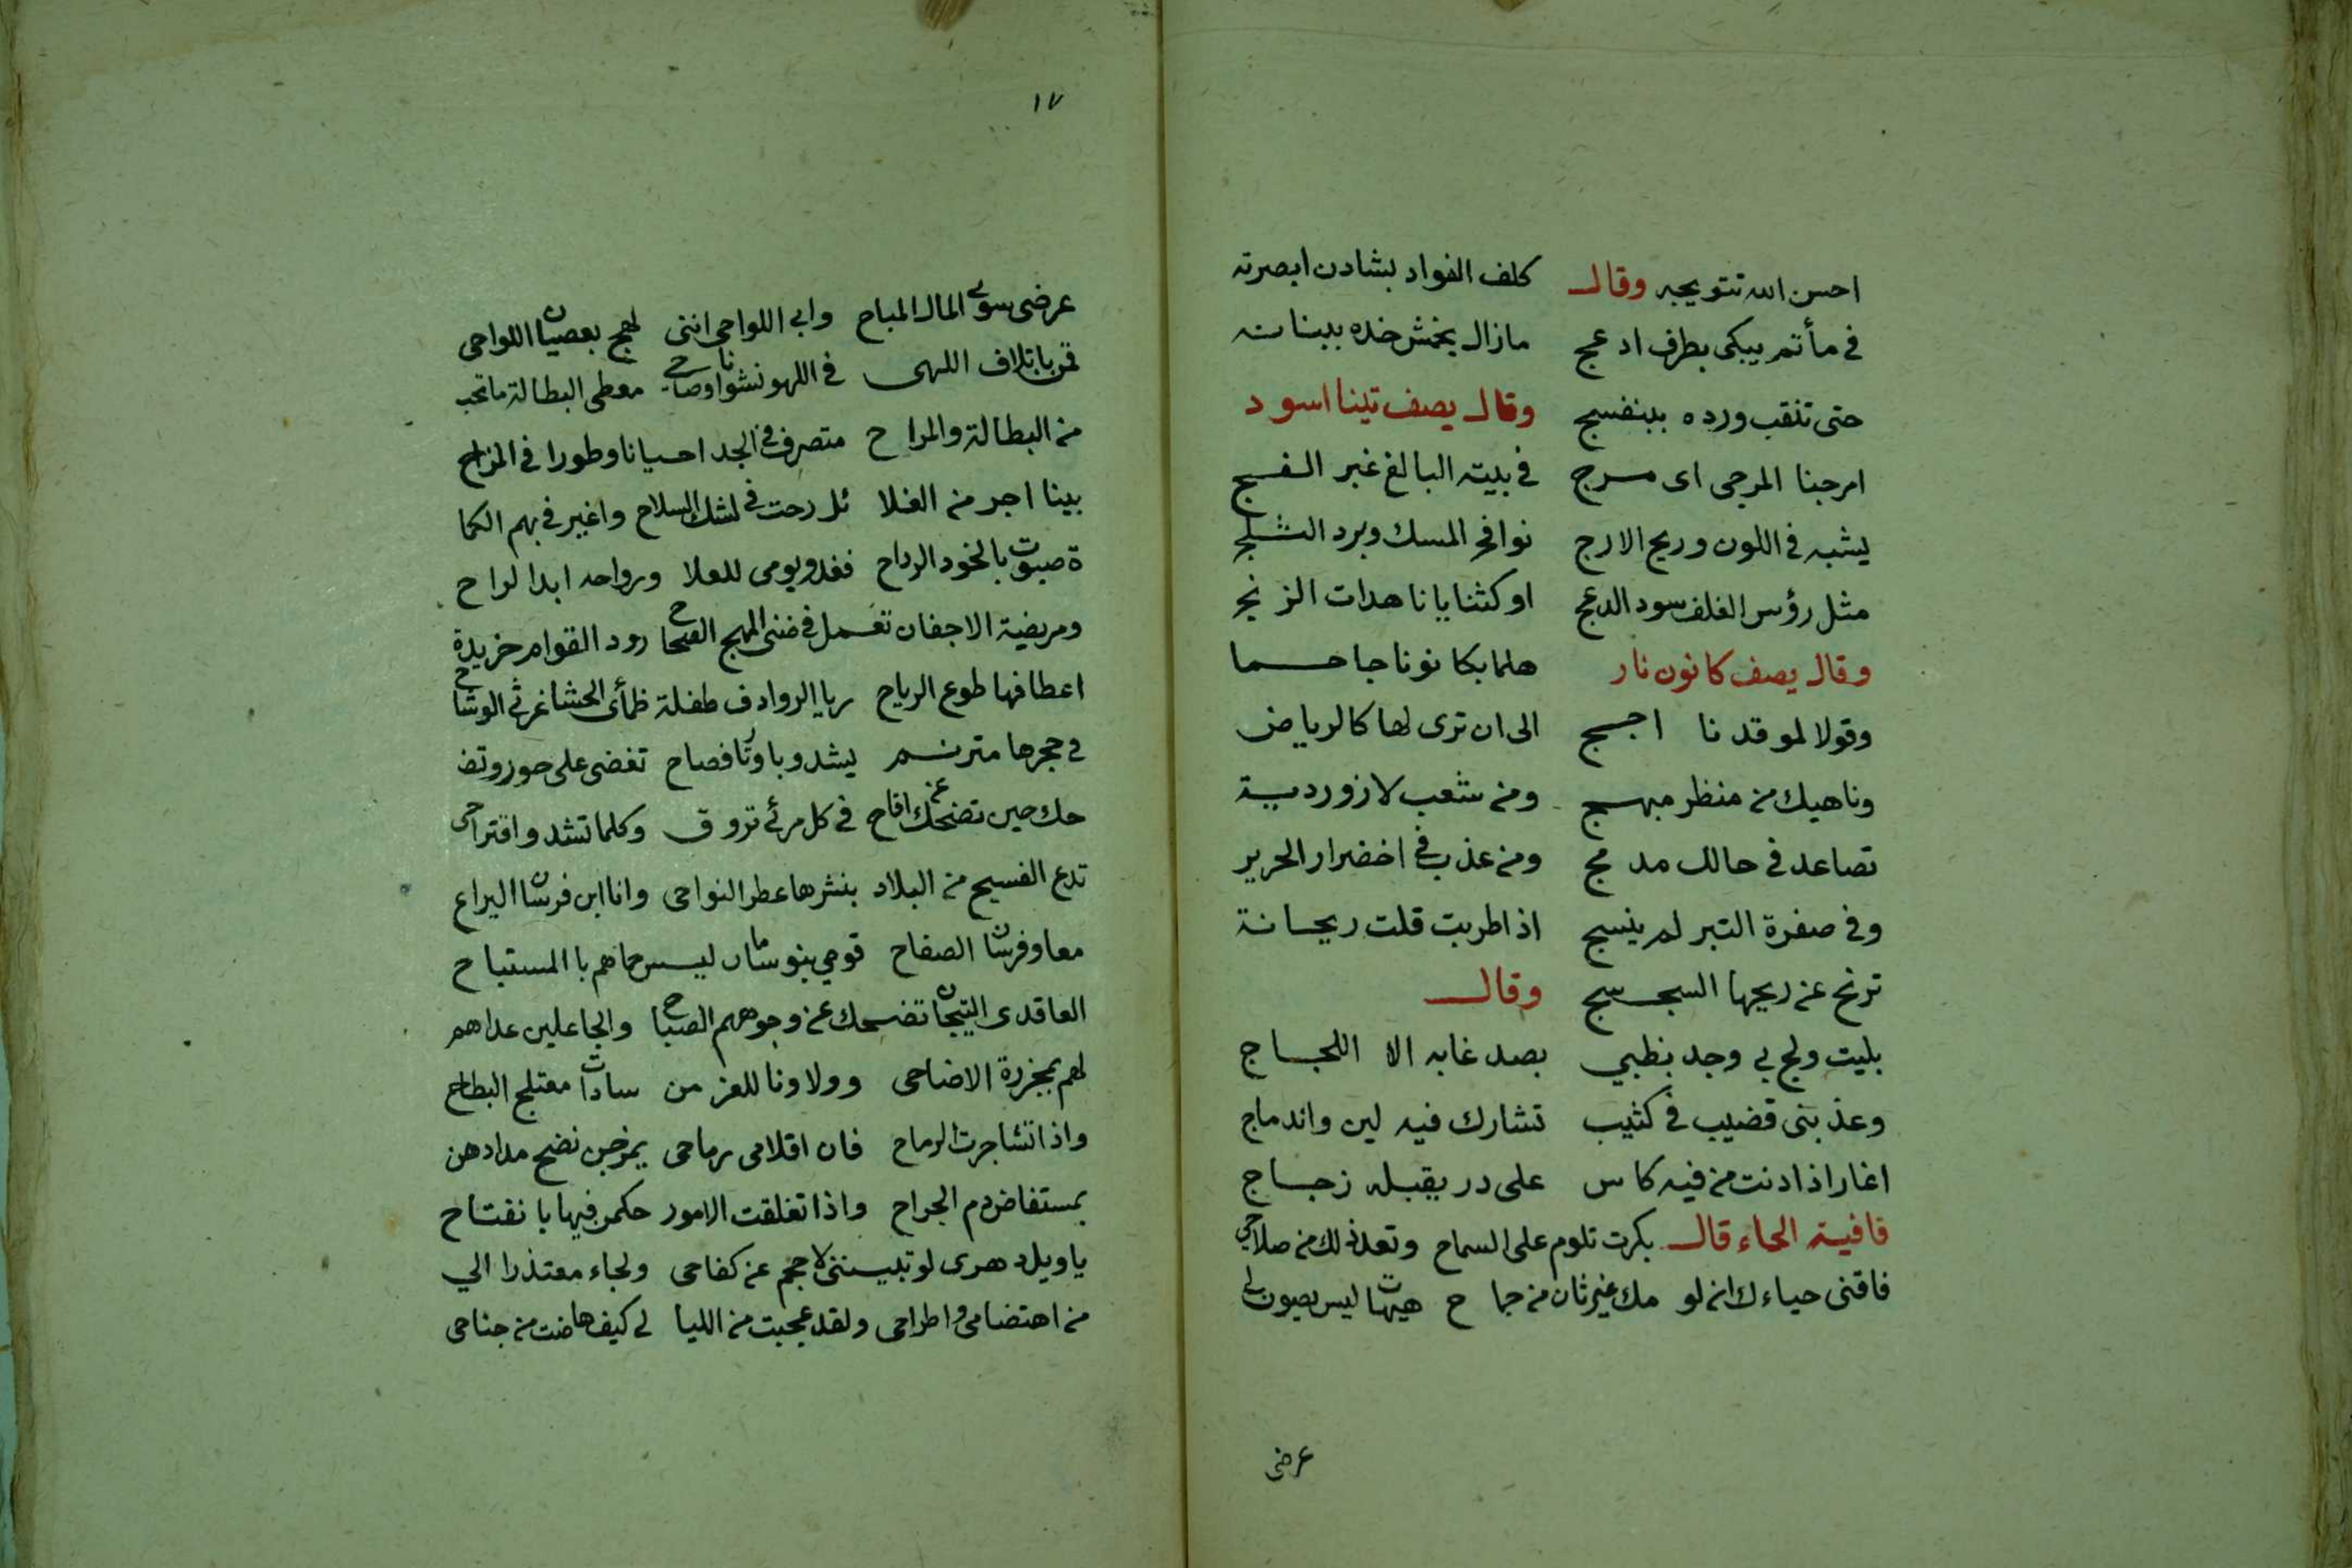 احسن الله تتويجه وقال كلف الفواد بشادن ابصرته
في مأتم يبكى بطرف ادعج مازال يخمش خده ببنانه
حتى تنقب ورده ببنفسج وقال يصف تينا اسود
امرجنا المرجى اى مرج في بيته البالغ غبر الفج
يشبه في اللون وريح الارج نوافح المسك وبرد الثلج
مثل رؤس الغلف سود الدعج او كثنايا ناهدات الزنج
وقال يصف كانون نار هلما بكانوننا جاحما
وقولا لموقدنا اجج الى ان ترى لها كالرياض
وناهيك من منظر مبهج ومن شعب لازوردية
تصاعد في حالك مدمج ومن عذب في اخضرار الحرير
وفي صفرة التبر لم ينسج اذا طربت قلت ريحانة
ترنح عن ريحها السجسج وقال
بليت ولج بي وجد بظبي بصد غابه الا اللجاج
وعذبنى قضيب في كثيب تشارك فيه لين واندماج
اغار اذا دنت من فيه كاس على در يقبله زجاج
قافية الحاء قال بكرت تلوم على السماح وتعد ذلك من صلاحي
فاقنى حياءك انه لو مك غير ثان من جماح هيهات ليس يصون لي
عرضى
١٧
عرضى سوى المال المباح وابي اللواحى اننى لهج بعصيان اللواحى
قمن باتلاف اللهى في اللهو نشوانا وصاحى معطى البطالة ماتحب
من البطالة والمراح متصرف في الجد احيانا وطورا في المزاح
بينا اجر من الغلا ئل رحت في لشك السلاح واغير في بهم الكما
ة صبوت بالخود الرداح فغدو يومى للعلا ورواحه ابدا لراح
ومريضة الاجفان تعمل في ضنى المهج الصحاح رود القوام خريدة
اعطافها طوع الرياح ريا الروادف طفلة ظمأى الحشا غرثى الوشاح
في حجرها مترنم يشدو باوتار فصاح تغضى على حور وتض
حك حين تضحك عن اقاح في كل مرئ تروق وكلما تشدو اقتراحى
تدع الفسيح من البلاد بنشرها عطر النواحى وانا ابن فرسان اليراع
معا وفرسان الصفاح قومي بنو ساسان ليس حماهم بالمستباح
العاقدى التيجان تضحك عن وجوههم الصباح والجاعلين عداهم
لهم بمجزرة الاضاحى وولاونا للغز من سادات معتلج البطاح
واذا تشاجرت الرماح فان اقلامى رماحى يمزجن نضح مدادهن
بمستفاض دم الجراح واذا تغلقت الامور حكمن فيها بانفتاح
ياويل دهرى لو تبيننى لاحجم عن كفاحى ولجاء معتذرا الي
من اهتضامى واطراحى ولقد عجبت من الليا لي كيف هاضت من جناحى